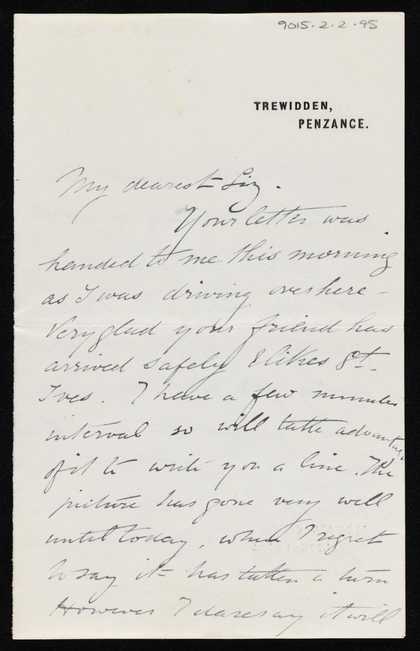 9015.2.2.95
TREWIDDEN,
PENZANCE.
My dearest Liz.
Your letter was
handed to me this morning
as I was driving over here –
Very glad your friend has
arrived safely & likes St.
Ives. I have a few minutes
interval so will take advantage
of it to write you a line. The
picture has gone very well
until today, when I regret
to say it has taken a turn
However I daresay it will